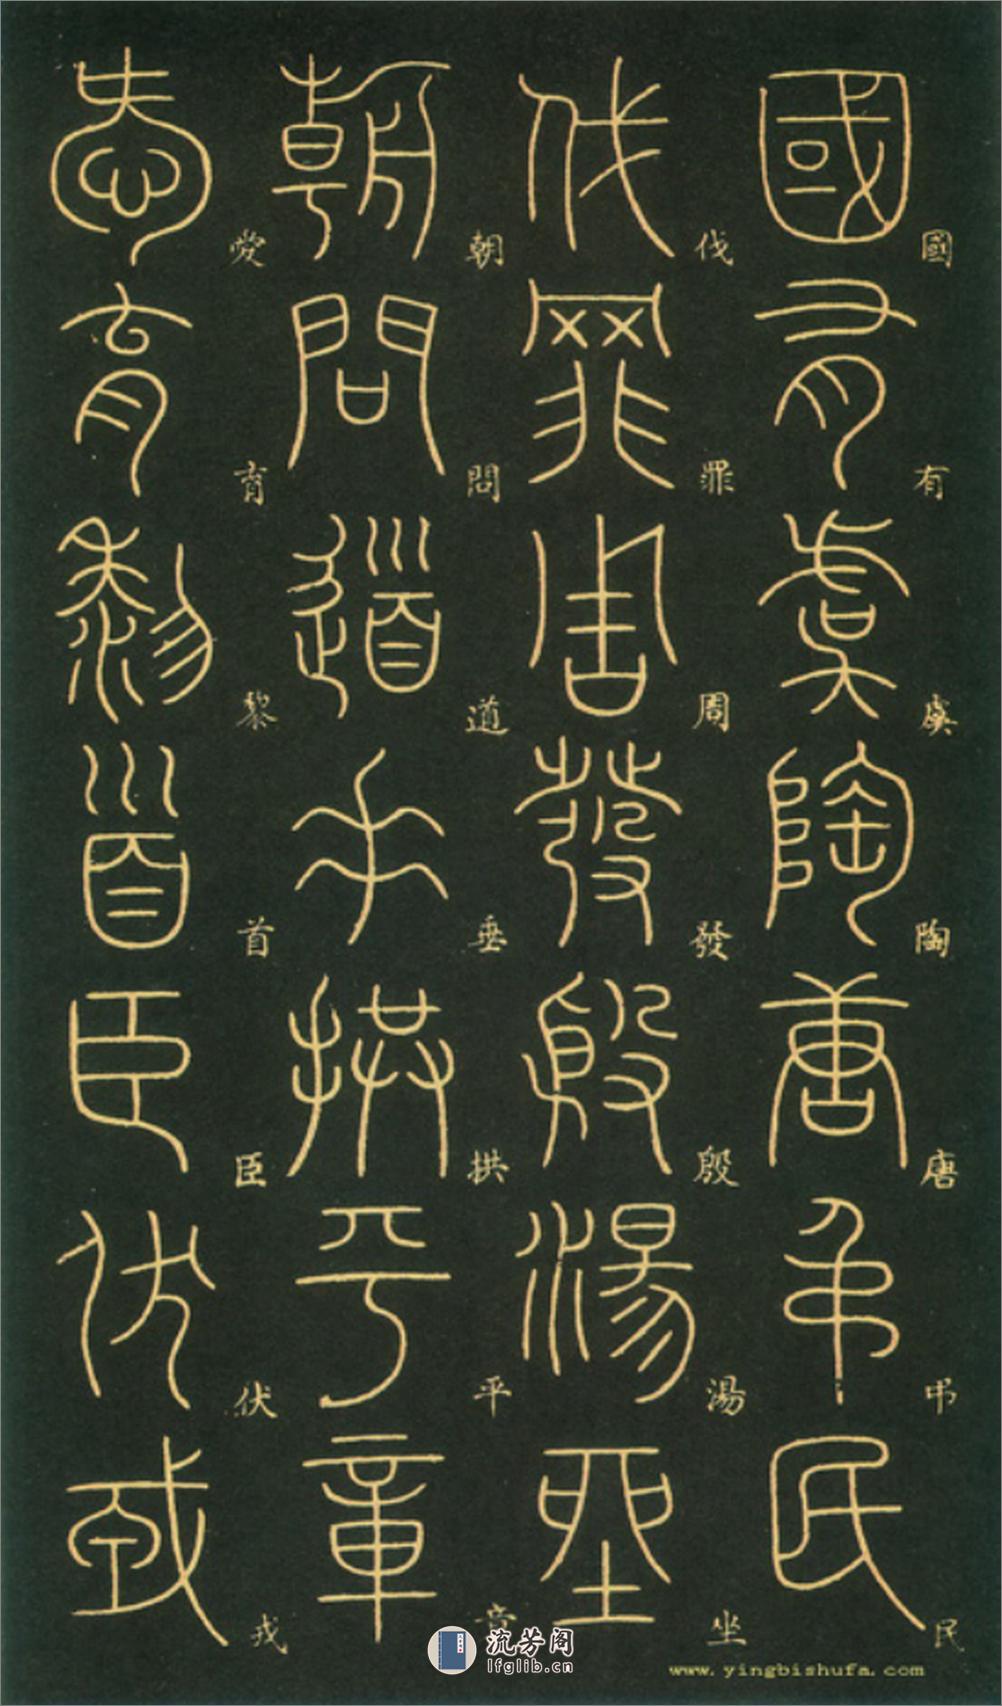 國有虞陶唐弔民
伐罪周發殷湯坐
朝問道垂拱平章
愛育黎首臣伏戎
流芳阁
lfglib.cn
www.yingbishufa.com